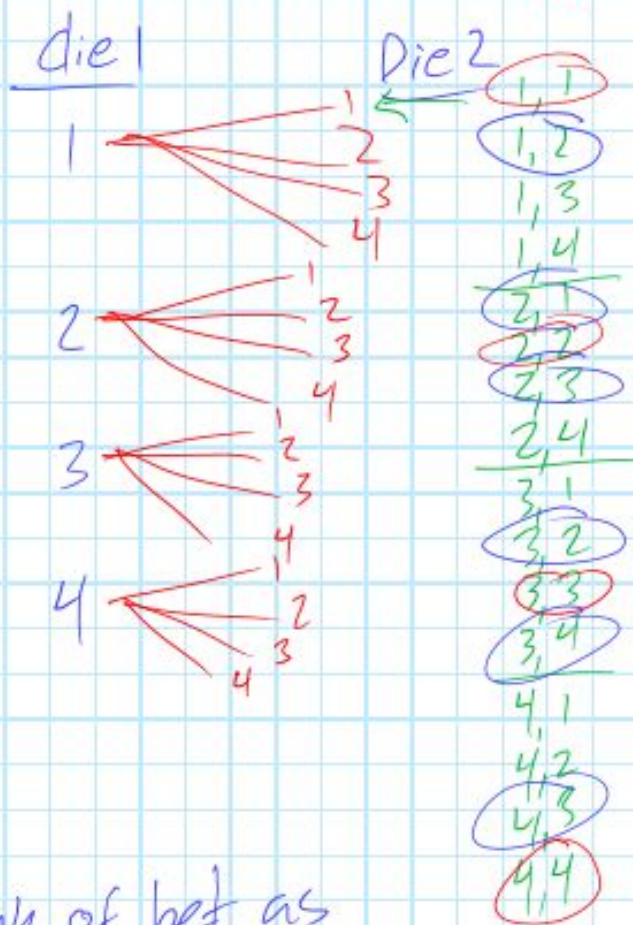 die 1 Die 2
1
1
2
3
4
2
1
2
3
4
3
1
2
3
4
4
1
2
3
4
1,1
1,2
1,3
1,4
2,1
2,2
2,3
2,4
3,1
3,2
3,3
3,4
4,1
4,2
4,3
4,4
of bet as